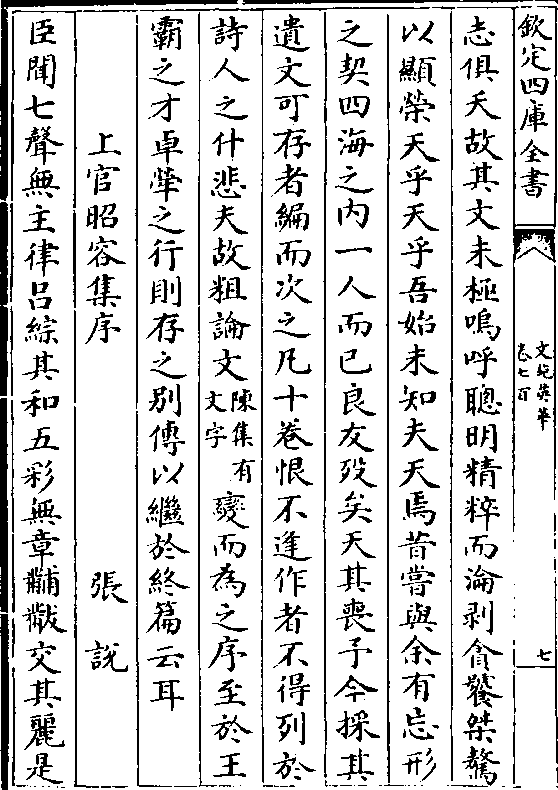 欽定四庫全書
文苑英華
卷七百
七
志俱夭故其文未極嗚呼聰明精粹而淪剥貪饕桀驁
以顯榮天乎天乎吾始未知夫天焉昔嘗與余有忘形
之契四海之内一人而已良友殁矣天其喪予今採其
遺文可存者編而次之凡十巻恨不逢作者不得列於
詩人之什悲夫故粗論文陳集有文字變而為之序至於王
霸之才卓犖之行則存之别傳以繼於終篇云耳
上官昭容集序 張説
臣聞七聲無主律吕綜其和五彩無章黼黻交其麗是